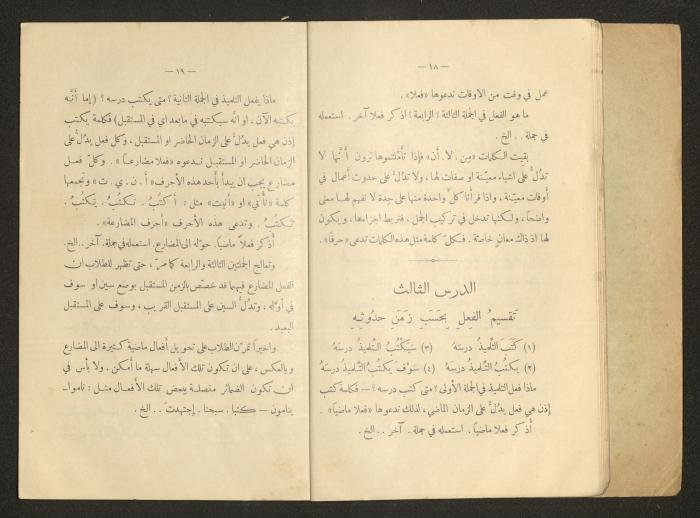 — ١٨ —
عمل في وقت من الاوقات ندعوها «فعلا».
ما هو الفعل في الجملة الثالثة؟ الرابعة؟ اذكر فعلا آخر. استعمله
في جملة .. الخ.
بقيت الكلمات «مِن . لا . أن» فإذا تأمّلتموها ترون أنّها لا
تدلّ على اشياء معيّنة او صفات لها، ولا تدلّ على حدوث أعمال في
أوقات معيّنة، واذا قرأنا كلّ واحدة منها على حِدة لا نفهم لها معنى
واضحاً، ولكنها تدخل في تركيب الجمل، فتربط اجزاءها، ويكون
لها اذ ذاك معانٍ خاصّة. فكلّ كلمة مثل هذه الكلمات تدعى «حرفا».
الدرس الثالث
تقسيمُ الفِعلِ بحَسَبِ زَمَنِ حدُوثِهِ
(١) كَتَبَ التلميذُ درسَهُ (٣) سَيَكتُبُ التلميذُ درسَهُ
(٢) يَكتُبُ التلميذُ درسَهُ (٤) سَوْفَ يَكتُبُ التلميذُ درسَهُ
ماذا فعل التلميذ في الجملة الأولى؟ متى كتب درسه؟ — فكلمة كتب
إذن هي فعل يدُلُّ على الزمان الماضي، لذلك ندعوها «فعلا ماضيا».
أذكر فعلا ماضيا. استعمله في جملة. آخر .. الخ.
— ١٩ —
ماذا يفعل التلميذ في الجملة الثانية؟ متى يكتب درسه؟ (إما أنَّه
يكتبه الآن، او انّه سيكتبه في ما بعد اي في المستقبل) فكلمة يكتب
إذن هي فعل يدلّ على الزمان الحاضر او المستقبل، وكل فعل يدُلُّ على
الزمان الحاضر او المستقبل ندعوه «فعلا مضارعاً». وكلّ فعل
مضارع يجب ان يبدأ بأحد هذه الأحرف «أ . ن . ي . ت» ونجمعها
كلمة «نأتي» او «أنيت» مثل: أكتُبُ. نَكتُبُ. يَكتُبُ.
تَكتُبُ. وتدعى هذه الأحرف «أحرف المضارعة».
أذكر فعلاً ماضياً. حوّله الى المضارع. استعمله في جملة. آخر .. الخ.
وتعالج الجملتين الثالثة والرابعة كما مرّ، حتى تظهر للطلاب ان
الفعل المضارع فيهما قد خصّص بالزمن المستقبل بوضع سين او سوف
في أوّله، وتدُلُّ السين على المستقبل القريب، وسوف على المستقبل
البعيد.
واخيراً تمرّن الطلاب على تحويل أفعال ماضية كثيرة الى المضارع
وبالعكس، على ان تكون تلك الأفعال سهلة ما أمكن. ولا بأس في
ان تكون الضمائر متصلة ببعض تلك الأفعال مثل: ناموا —
ينامون — كتبا. سبحنا. إجتهدت .. الخ.